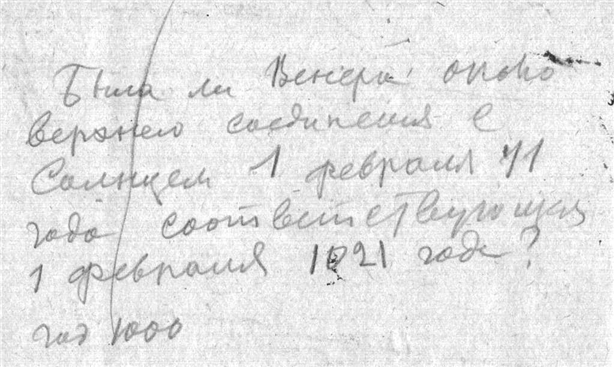 Была ли Венера около
верхнего соединения с
Солнцем 1 февраля 71
года соответствующая
1 февраля 1021 года?
год 1000